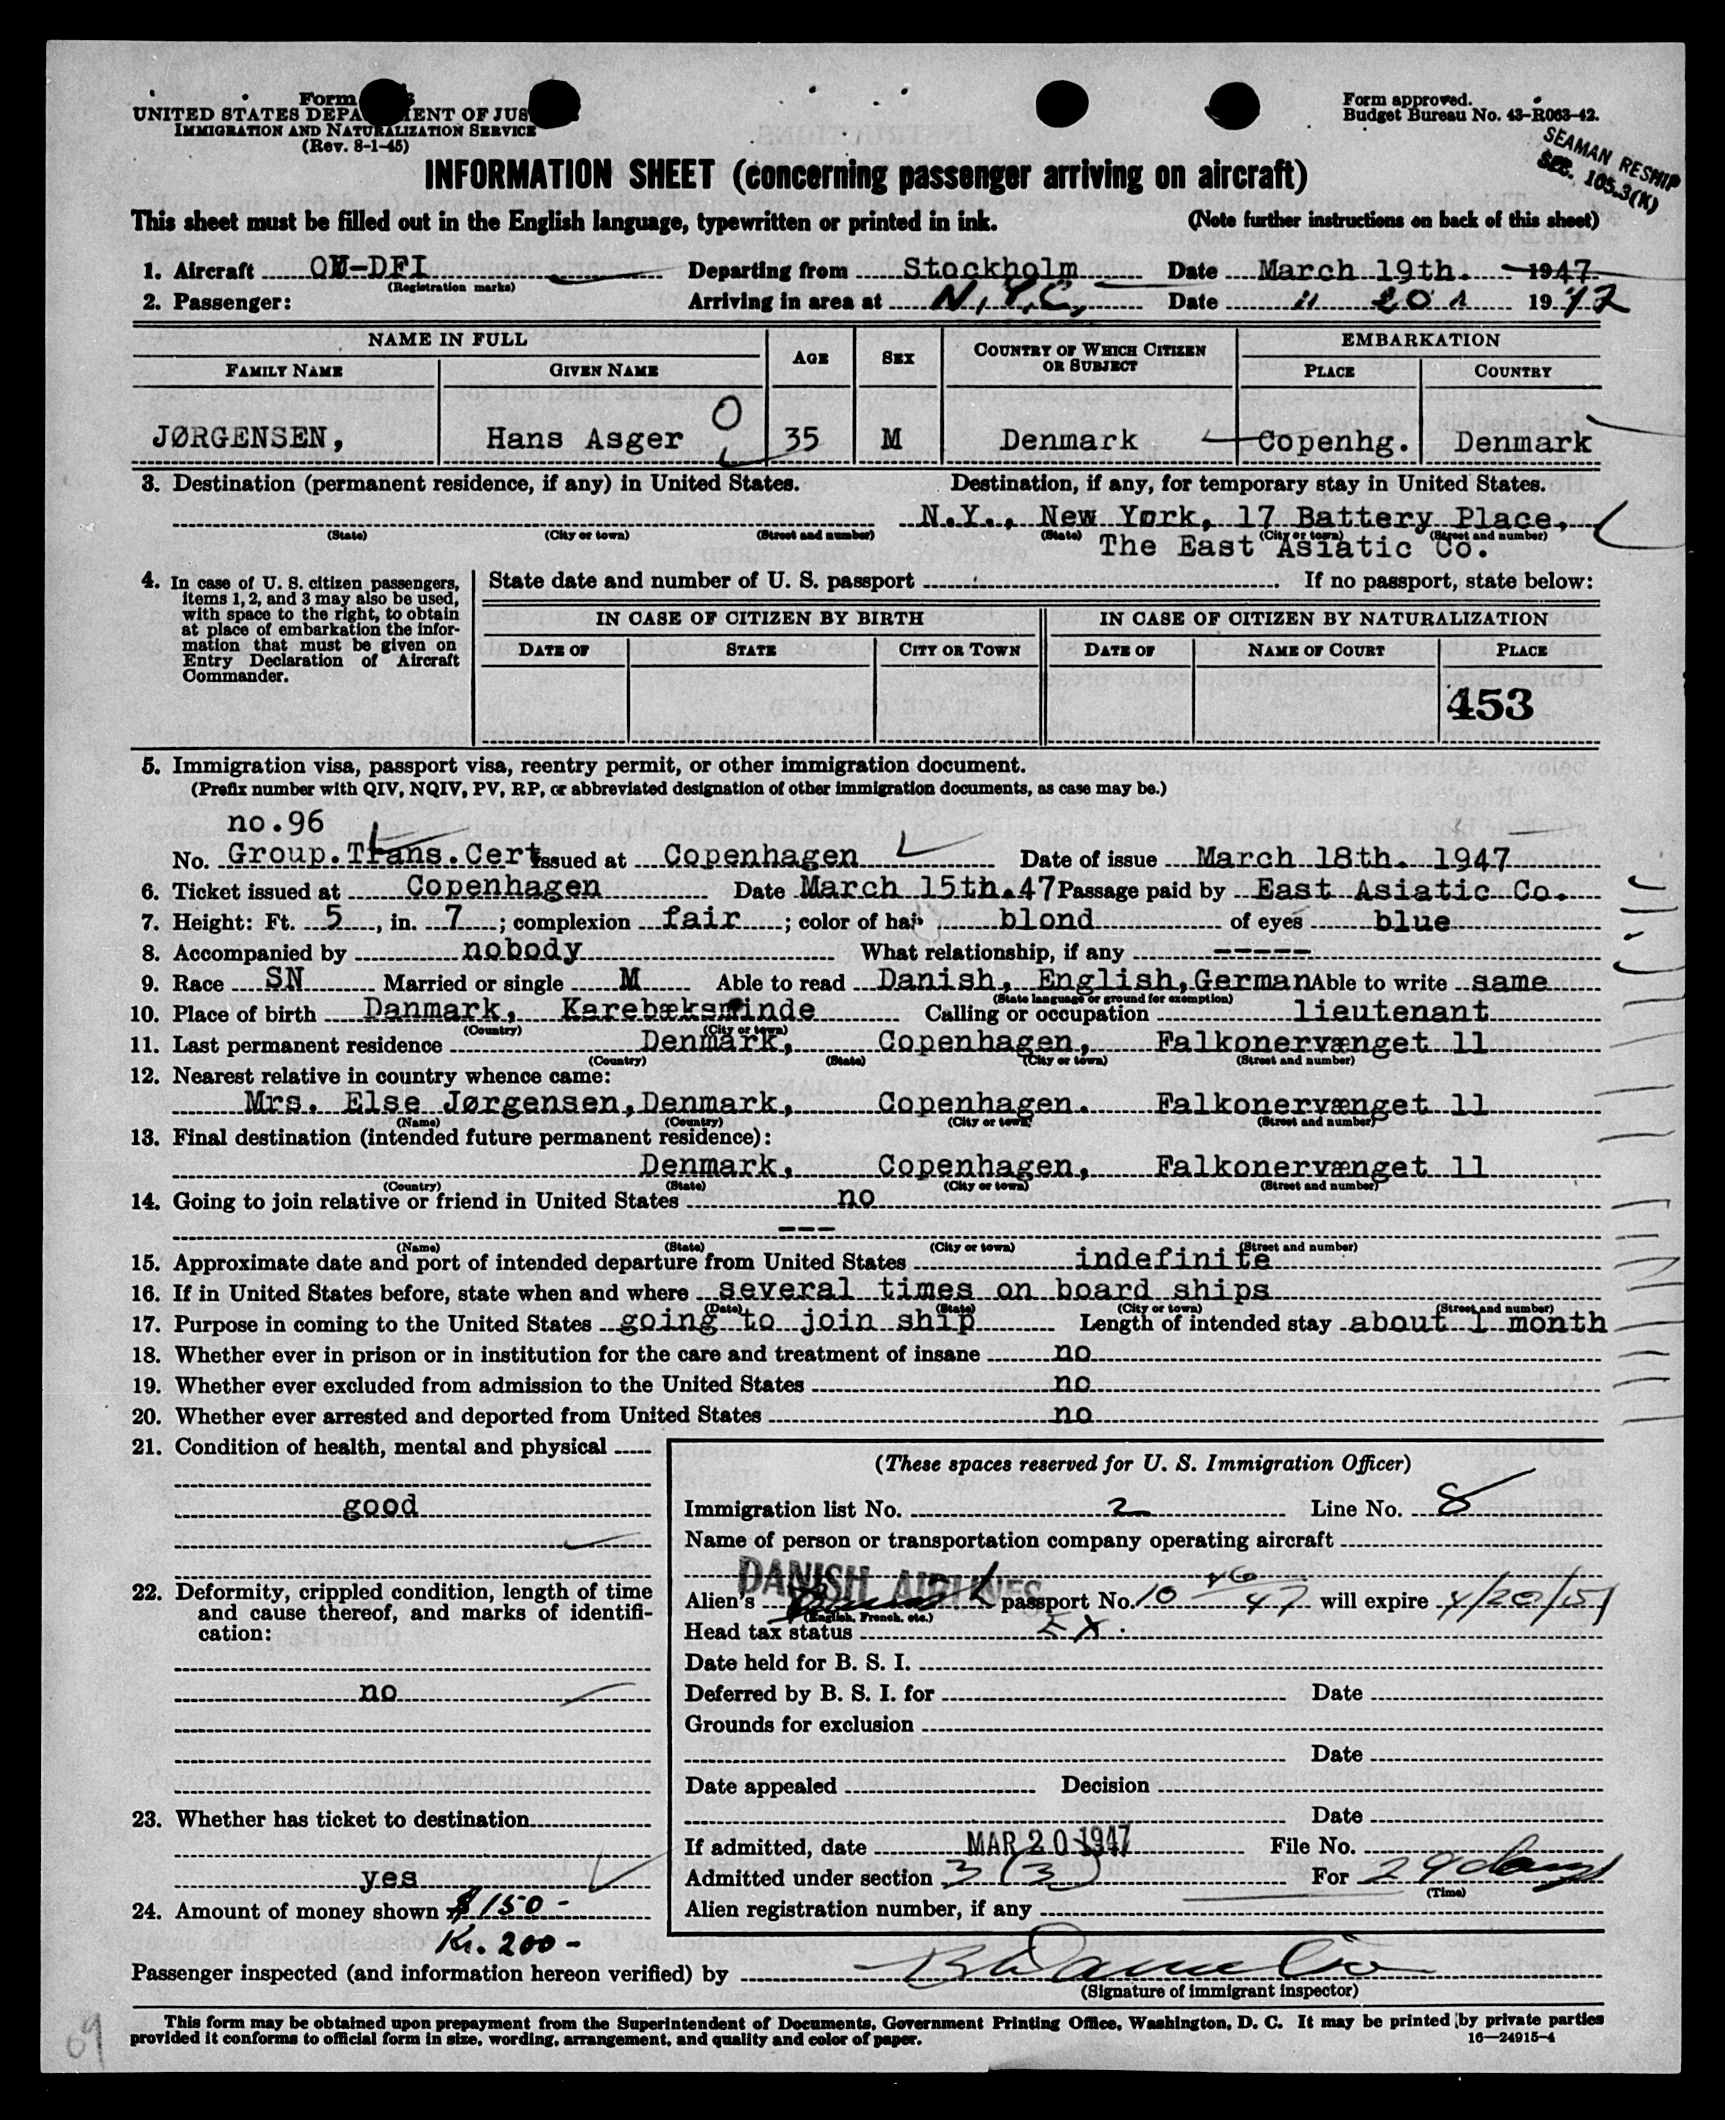 Form
UNITED STATES DEPARTMENT OF JUSTICE
IMMIGRATION AND NATURALIZATION SERVICE
(Rev. 8-1-45)
Form approved.
Budget Bureau No. 43-R063-42.
SEAMAN RESHIP
SEC. 105.3(K)
INFORMATION SHEET (concerning passenger arriving on aircraft)
This sheet must be filled out in the English language, typewritten or printed in ink. (Note further instructions on back of this sheet)
1. Aircraft OY-DFI Departing from Stockholm Date March 19th. 1947
(Registration marks)
2. Passenger: Arriving in area at N.Y.C. Date " 20 1947
NAME IN FULL AGE SEX COUNTRY OF WHICH CITIZEN OR SUBJECT EMBARKATION
FAMILY NAME GIVEN NAME PLACE COUNTRY
JØRGENSEN, Hans Asger 35 M Denmark Copenhg. Denmark
3. Destination (permanent residence, if any) in United States. Destination, if any, for temporary stay in United States.
N.Y., New York, 17 Battery Place,
(State) (City or town) (Street and number) (State) (City or town) (Street and number)
The East Asiatic Co.
4. In case of U. S. citizen passengers, items 1, 2, and 3 may also be used, with space to the right, to obtain at place of embarkation the information that must be given on Entry Declaration of Aircraft Commander.
State date and number of U. S. passport If no passport, state below:
IN CASE OF CITIZEN BY BIRTH IN CASE OF CITIZEN BY NATURALIZATION
DATE OF STATE CITY OR TOWN DATE OF NAME OF COURT PLACE
453
5. Immigration visa, passport visa, reentry permit, or other immigration document.
(Prefix number with QIV, NQIV, PV, RP, or abbreviated designation of other immigration documents, as case may be.)
no.96
No. Group.Trans.Cert Issued at Copenhagen Date of issue March 18th. 1947
6. Ticket issued at Copenhagen Date March 15th.47 Passage paid by East Asiatic Co.
7. Height: Ft. 5, in. 7; complexion fair; color of hair blond of eyes blue
8. Accompanied by nobody What relationship, if any -----
9. Race SN Married or single M Able to read Danish, English,German Able to write same
(State language or ground for exemption)
10. Place of birth Danmark, Karebæksminde Calling or occupation lieutenant
(Country) (City or town)
11. Last permanent residence Denmark, Copenhagen, Falkonervænget 11
(Country) (State) (City or town) (Street and number)
12. Nearest relative in country whence came:
Mrs. Else Jørgensen, Denmark, Copenhagen. Falkonervænget 11
(Name) (Country) (City or town) (Street and number)
13. Final destination (intended future permanent residence):
Denmark, Copenhagen, Falkonervænget 11
(Country) (State) (City or town) (Street and number)
14. Going to join relative or friend in United States no
---
(Name) (State) (City or town) (Street and number)
15. Approximate date and port of intended departure from United States indefinite
16. If in United States before, state when and where several times on board ships
(Date) (State) (City or town) (Street and number)
17. Purpose in coming to the United States going to join ship Length of intended stay about 1 month
18. Whether ever in prison or in institution for the care and treatment of insane no
19. Whether ever excluded from admission to the United States no
20. Whether ever arrested and deported from United States no
21. Condition of health, mental and physical
good
22. Deformity, crippled condition, length of time and cause thereof, and marks of identification:
no
23. Whether has ticket to destination
yes
24. Amount of money shown $150-
Kr. 200-
(These spaces reserved for U. S. Immigration Officer)
Immigration list No. 2 Line No. 8
Name of person or transportation company operating aircraft
DANISH AIRLINES
Alien's passport No. 10 47 will expire 4/20/51
(English, French, etc.)
Head tax status EX.
Date held for B. S. I.
Deferred by B. S. I. for Date
Grounds for exclusion
Date
Date appealed Decision
Date
If admitted, date MAR 20 1947 File No.
Admitted under section 3 (3) For 29 days
(Time)
Alien registration number, if any
Passenger inspected (and information hereon verified) by
(Signature of immigrant inspector)
This form may be obtained upon prepayment from the Superintendent of Documents, Government Printing Office, Washington, D. C. It may be printed by private parties
provided it conforms to official form in size, wording, arrangement, and quality and color of paper. 16—24915-4
69